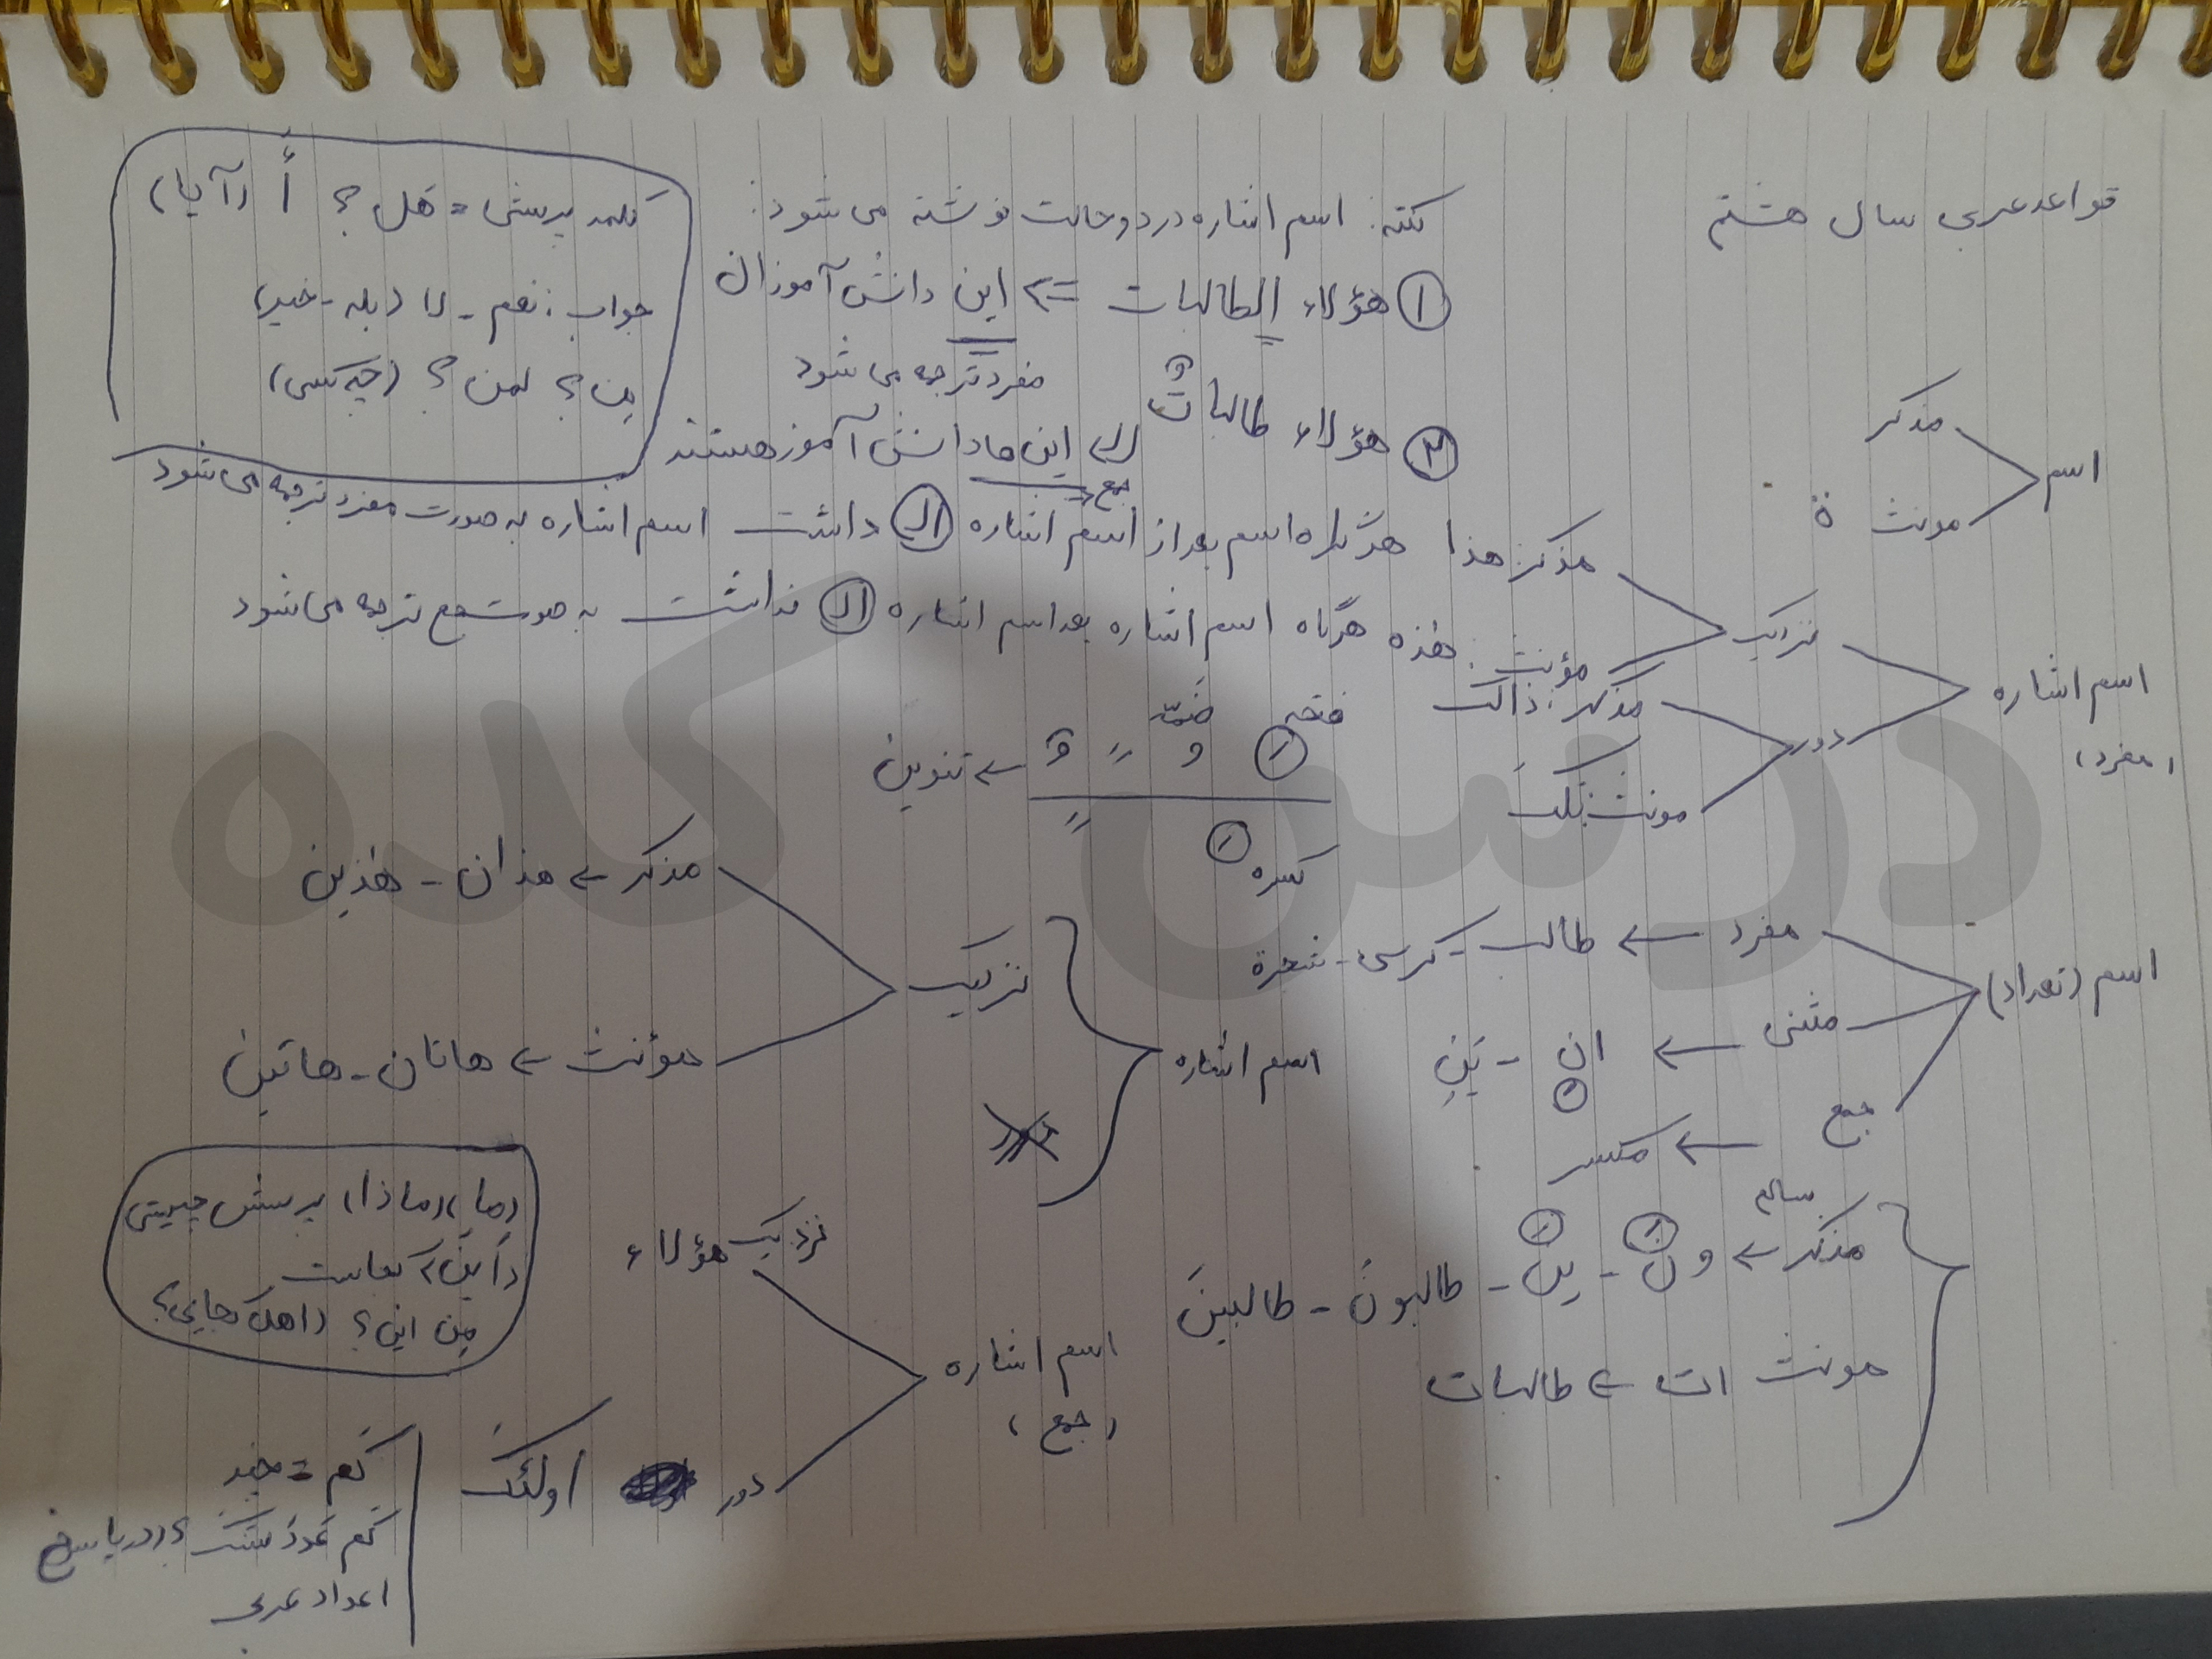 قواعد عربی سال هشتم
اسم
مذکر
مونث ة
اسم اشاره
(مفرد)
نزدیک
مذکر: هذا
مؤنث: هذه
دور
مذکر: ذالک
مونث: تلکَ
نکته: اسم اشاره در دو حالت نوشته می شود:
۱ هؤلاء الطالبات => این دانش آموزان
مفرد ترجمه می شود
۲ هؤلاء طالباتٌ
این ها دانش آموز هستند
جمع
هرگاه اسم بعد از اسم اشاره ال داشت اسم اشاره به صورت مفرد ترجمه می شود
هرگاه اسم اشاره بعد اسم اشاره ال نداشت به صورت جمع ترجمه می شود
کلمه پرسشی = هل ؟ أ (آیا)
جواب: نعم - لا (بله - خیر)
مِن ؟ لمن ؟ (چه کسی)
فتحه ضمّه
← تنوین
کسره
اسم (تعداد)
مفرد ← طالب - کرسی - شجرة
مثنی ← ان - یَنِ
جمع ← مکسر
سالم
مذکر ← ونَ - ینَ - طالبونَ - طالبینَ
مونث ات ← طالبات
اسم اشاره
نزدیک
مذکر ← هذان - هذین
مؤنث ← هاتان - هاتین
اسم اشاره
(جمع)
نزدیک هؤلاء
دور اولئکَ
(ما)، (ماذا) پرسش چیستی
(أینَ) کجاست
مِن این؟ (اهل کجایی؟
کَم = چند
اعداد عربی
درس کده